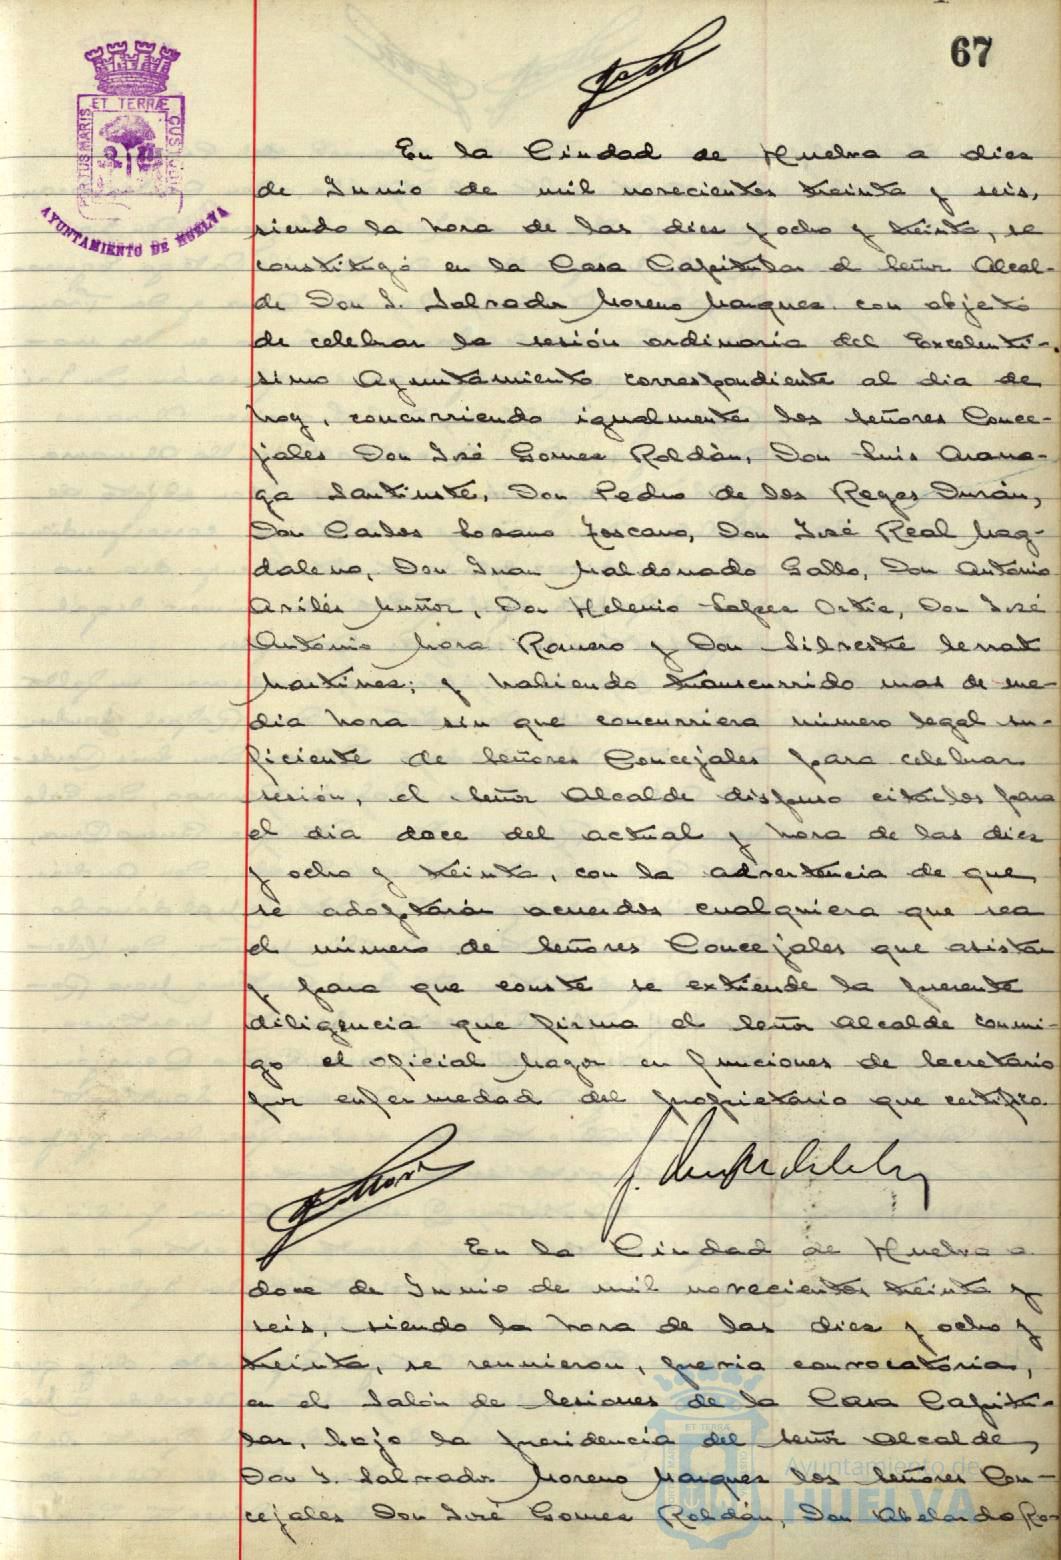 67
PORTUS MARIS ET TERRÆ CUSTODIA
AYUNTAMIENTO DE HUELVA
En la Ciudad de Huelva a diez
de Junio de mil novecientos treinta y seis,
siendo la hora de las diez y ocho y treinta, se
constituyó en la Casa Capitular el Señor Alcal-
de Don S. Salvador Moreno Marquez con objeto
de celebrar la sesión ordinaria del Excelentí-
simo Ayuntamiento correspondiente al dia de
hoy, concurriendo igualmente los Señores Conce-
jales Don José Gomez Roldán, Don Luis Arana-
ga Santiuste, Don Pedro de los Reyes Durán,
Don Carlos Lozano Toscano, Don José Real Mag-
daleno, Don Juan Maldonado Gallo, Don Antonio
Avilés Muñoz, Don Helenio Lopez Ortiz, Don José
Antonio Mora Romero y Don Silvestre Serrat
Martinez; y habiendo transcurrido mas de me-
dia hora sin que concurriera número legal su-
ficiente de Señores Concejales para celebrar
sesión, el Señor Alcalde dispuso citarlos para
el dia doce del actual y hora de las diez
y ocho y treinta, con la advertencia de que
se adoptarán acuerdos cualquiera que sea
el número de Señores Concejales que asistan
y para que conste se extiende la presente
diligencia que firma el Señor Alcalde conmi-
go el oficial mayor en funciones de Secretario
por enfermedad del propietario que certifico.
En la Ciudad de Huelva a
doce de Junio de mil novecientos treinta y
seis, siendo la hora de las diez y ocho y
treinta, se reunieron, previa convocatoria,
en el Salón de Sesiones de la Casa Capitu-
lar, bajo la presidencia del Señor Alcalde,
Don S. Salvador Moreno Marquez los Señores Con-
cejales Don José Gomez Roldán, Don Abelardo Ro-
Ayuntamiento de
HUELVA